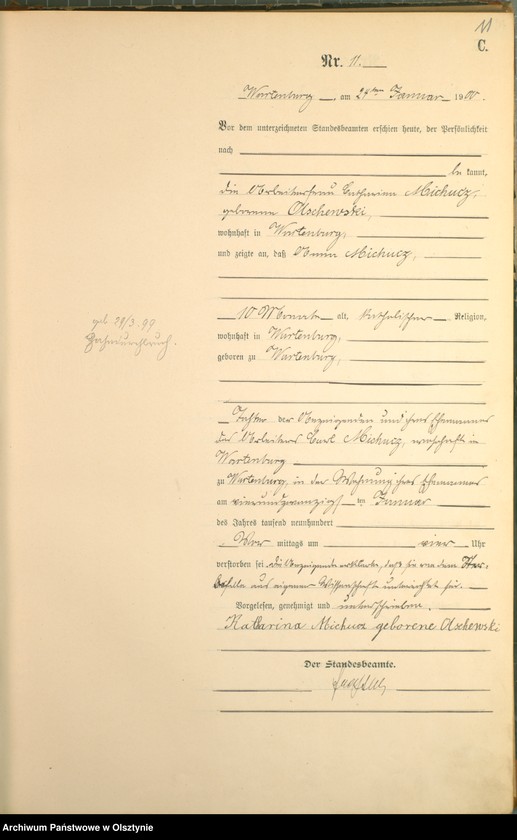 11
C.
Nr. 11.
Wartenburg, am 24ten Januar 1900.
Vor dem unterzeichneten Standesbeamten erschien heute, der Persönlichkeit
nach
be kannt,
die Arbeiterfrau Catharina Michucz,
geborene Olschewski,
wohnhaft in Wartenburg,
und zeigte an, daß Anna Michucz,
10 Monate alt, katholischer Religion,
wohnhaft in Wartenburg,
geboren zu Wartenburg,
geb. 29/3. 99
Zahndurchbruch.
Tochter der Anzeigenden und ihres Ehemannes
des Arbeiters Carl Michucz, wohnhaft in
Wartenburg
zu Wartenburg, in der Wohnung ihres Ehemannes
am vierundzwanzigsten Januar
des Jahres tausend neunhundert
Vor mittags um vier Uhr
verstorben sei, die Anzeigende erklärte, daß sie von dem Ster-
befalle aus eigener Wissenschaft unterrichtet sei.
Vorgelesen, genehmigt und unterschrieben.
Katarina Michucz geborene Olschewski
Der Standesbeamte.
Archiwum Państwowe w Olsztynie